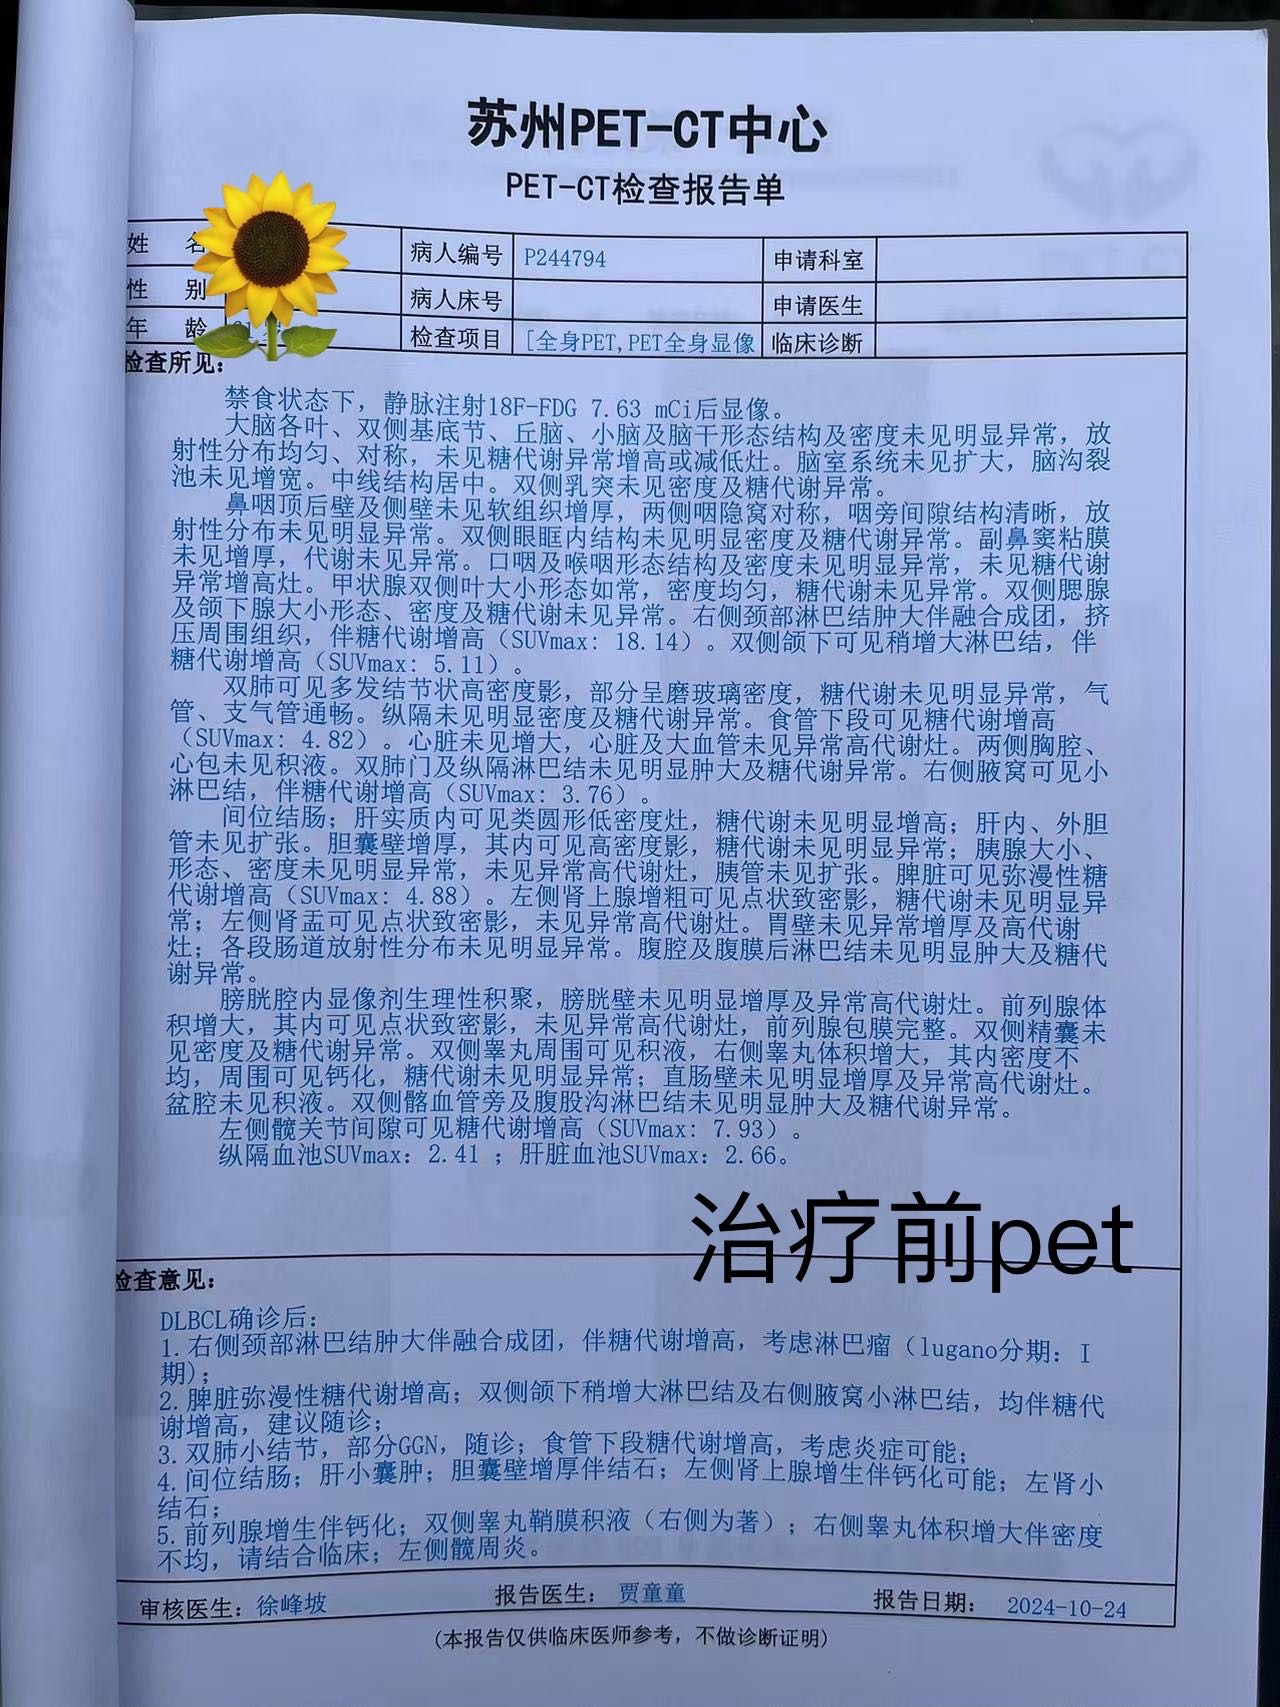 苏州PET-CT中心
PET-CT检查报告单
姓 名 病人编号 P244794 申请科室
性 别 病人床号 申请医生
年 龄 检查项目 [全身PET,PET全身显像 临床诊断
检查所见:
禁食状态下，静脉注射18F-FDG 7.63 mCi后显像。
大脑各叶、双侧基底节、丘脑、小脑及脑干形态结构及密度未见明显异常，放
射性分布均匀、对称，未见糖代谢异常增高或减低灶。脑室系统未见扩大，脑沟裂
池未见增宽。中线结构居中。双侧乳突未见密度及糖代谢异常。
鼻咽顶后壁及侧壁未见软组织增厚，两侧咽隐窝对称，咽旁间隙结构清晰，放
射性分布未见明显异常。双侧眼眶内结构未见明显密度及糖代谢异常。副鼻窦粘膜
未见增厚，代谢未见异常。口咽及喉咽形态结构及密度未见明显异常，未见糖代谢
异常增高灶。甲状腺双侧叶大小形态如常，密度均匀，糖代谢未见异常。双侧腮腺
及颌下腺大小形态、密度及糖代谢未见异常。右侧颈部淋巴结肿大伴融合成团，挤
压周围组织，伴糖代谢增高（SUVmax: 18.14）。双侧颌下可见稍增大淋巴结，伴
糖代谢增高（SUVmax: 5.11）。
双肺可见多发结节状高密度影，部分呈磨玻璃密度，糖代谢未见明显异常，气
管、支气管通畅。纵隔未见明显密度及糖代谢异常。食管下段可见糖代谢增高
（SUVmax: 4.82）。心脏未见增大，心脏及大血管未见异常高代谢灶。两侧胸腔、
心包未见积液。双肺门及纵隔淋巴结未见明显肿大及糖代谢异常。右侧腋窝可见小
淋巴结，伴糖代谢增高（SUVmax: 3.76）。
间位结肠；肝实质内可见类圆形低密度灶，糖代谢未见明显增高；肝内、外胆
管未见扩张。胆囊壁增厚，其内可见高密度影，糖代谢未见明显异常；胰腺大小、
形态、密度未见明显异常，未见异常高代谢灶，胰管未见扩张。脾脏可见弥漫性糖
代谢增高（SUVmax: 4.88）。左侧肾上腺增粗可见点状致密影，糖代谢未见明显异
常；左侧肾盂可见点状致密影，未见异常高代谢灶。胃壁未见异常增厚及高代谢
灶；各段肠道放射性分布未见明显异常。腹腔及腹膜后淋巴结未见明显肿大及糖代
谢异常。
膀胱腔内显像剂生理性积聚，膀胱壁未见明显增厚及异常高代谢灶。前列腺体
积增大，其内可见点状致密影，未见异常高代谢灶，前列腺包膜完整。双侧精囊未
见密度及糖代谢异常。双侧睾丸周围可见积液，右侧睾丸体积增大，其内密度不
均，周围可见钙化，糖代谢未见明显异常；直肠壁未见明显增厚及异常高代谢灶。
盆腔未见积液。双侧髂血管旁及腹股沟淋巴结未见明显肿大及糖代谢异常。
左侧髋关节间隙可见糖代谢增高（SUVmax: 7.93）。
纵隔血池SUVmax: 2.41 ；肝脏血池SUVmax: 2.66。
治疗前pet
检查意见:
DLBCL确诊后:
1. 右侧颈部淋巴结肿大伴融合成团，伴糖代谢增高，考虑淋巴瘤（lugano分期: I
期);
2. 脾脏弥漫性糖代谢增高；双侧颌下稍增大淋巴结及右侧腋窝小淋巴结，均伴糖代
谢增高，建议随诊；
3. 双肺小结节，部分GGN，随诊；食管下段糖代谢增高，考虑炎症可能；
4. 间位结肠；肝小囊肿；胆囊壁增厚伴结石；左侧肾上腺增生伴钙化可能；左肾小
结石；
5. 前列腺增生伴钙化；双侧睾丸鞘膜积液（右侧为著）；右侧睾丸体积增大伴密度
不均，请结合临床；左侧髋周炎。
审核医生: 徐峰坡 报告医生: 贾童童 报告日期: 2024-10-24
(本报告仅供临床医师参考，不做诊断证明)